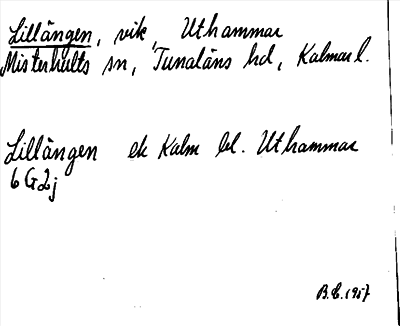 Lillängen, vik, Uthammar
Misterhults sn, Tunaläns hd, Kalmar l.
Lillängen ek Kalm bl. Uthammar
6G2j
B.E. 1957